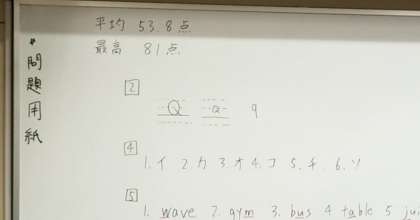 ・問題用紙
平均 53.8点
最高 81点
2
Q Q 9
4
1.イ 2 カ 3.オ 4.コ 5.チ 6.ソ
5
1. wave 2. gym 3. bus 4 table 5